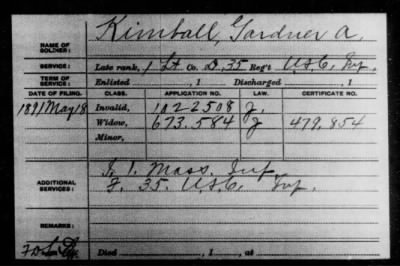 NAME OF SOLDIER: Kimball, Gardner A.
SERVICE: Late rank, 1 Lt Co. D, 35 Reg't U.S.C. Inf.
TERM OF SERVICE: Enlisted , 1 Discharged , 1
DATE OF FILING. CLASS. APPLICATION NO. LAW. CERTIFICATE NO.
1891 May 18 Invalid, 1022508 J.
Widow, 673.584 J 479,854
Minor,
ADDITIONAL SERVICES: I. 1. Mass. Inf.
F. 35. U.S.C. Inf.
REMARKS:
Died , 1 , at